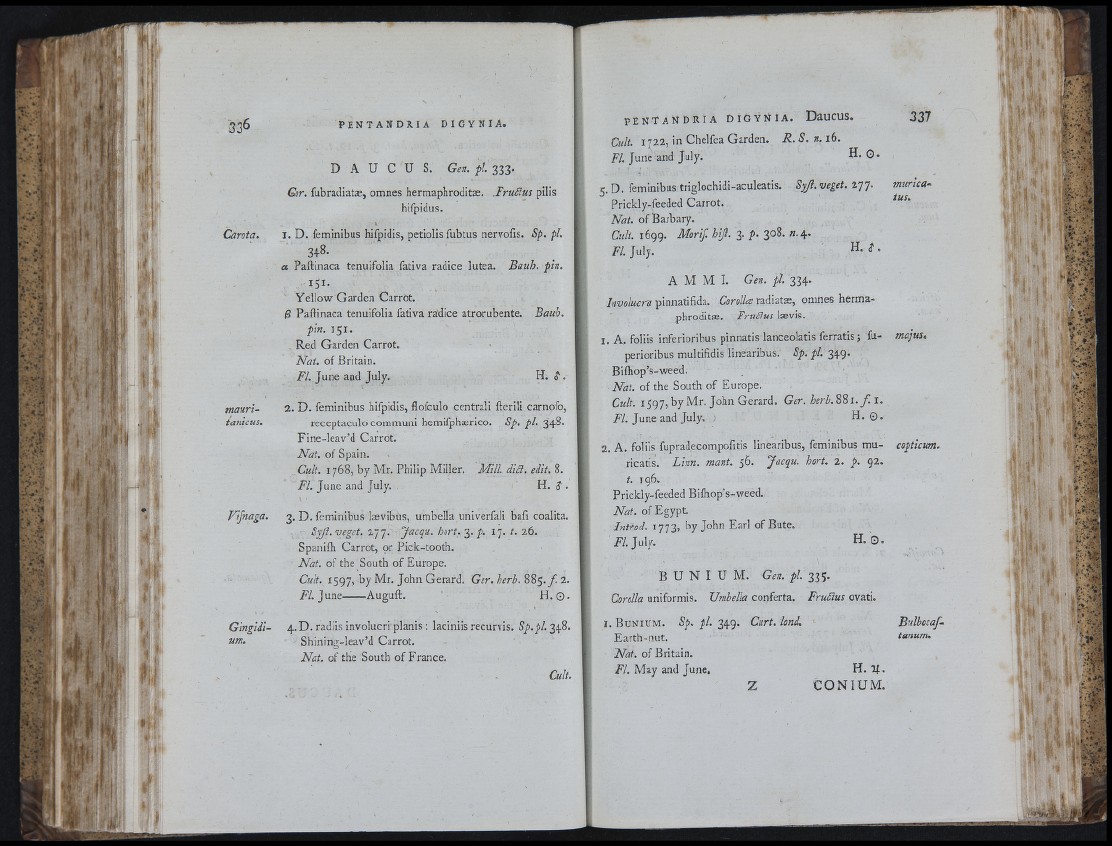 336 PENTANDRIA DIGYNIA.
D A U C U S. Gen. pl. 333.
Cor. ſubradiatæ, omnes hermaphroditæ. Fructus pilis
hiſpidus.
Carota. 1. D. ſeminibus hiſpidis, petiolis ſubtus nervoſis. Sp. pl.
348.
α Paſtinaca tenuifolia ſativa radice lutea. Bauh. pin.
151.
Yellow Garden Carrot.
β Paſtinaca tenuifolia ſativa radice atrorubente. Bauh.
pin. 151.
Red Garden Carrot.
Nat. of Britain.
Fl. June and July. H. ♂.
mauri- 2. D. ſeminibus hiſpidis, floſculo centrali ſterili carnoſo,
tanicus. receptaculo communi hemiſphærico. Sp. pl. 348.
Fine-leav'd Carrot.
Nat. of Spain.
Cult. 1768, by Mr. Philip Miller. Mill. dict. edit. 8.
Fl. June and July. H. ♂.
Viſnaga. 3. D. ſeminibus lævibus, umbella univerſali baſi coalita.
Syſt. veget. 277. Jacqu. hort. 3. p. 17. t. 26.
Spaniſh Carrot, or Pick-tooth.
Nat. of the South of Europe.
Cult. 1597, by Mr. John Gerard. Ger. herb. 885. f. 2.
Fl. June——Auguſt. H. ☉.
Gingidi- 4. D. radiis involucri planis: laciniis recurvis. Sp. pl. 348.
um. Shining-leav'd Carrot.
Nat. of the South of France.
Cult.
PENTANDRIA DIGYNIA. Daucus. 337
Cult. 1722, in Chelſea Garden. R. S. n. 16.
Fl. June and July. H. ☉.
5. D. ſeminibus triglochidi-aculeatis. Syſt. veget. 277. murica-
Prickly-ſeeded Carrot. tus.
Nat. of Barbary.
Cult. 1699. Moriſ. hiſt. 3. p. 308. n. 4.
Fl. July. H. ♂.
A M M I. Gen. pl. 334.
Involucra pinnatifida. Corollæ radiatæ, omnes herma-
phroditæ. Fructus lævis.
1. A. foliis inferioribus pinnatis lanceolatis ſerratis; ſu- majus.
perioribus multifidis linearibus. Sp. pl. 349.
Biſhop's-weed.
Nat. of the South of Europe.
Cult. 1597, by Mr. John Gerard. Ger. herb. 881. f. 1.
Fl. June and July. H. ☉.
2. A. foliis ſupradecompoſitis linearibus, ſeminibus mu- copticum.
ricatis. Linn. mant. 56. Jacqu. hort. 2. p. 92.
t. 196.
Prickly-ſeeded Biſhop's-weed.
Nat. of Egypt.
Introd. 1773, by John Earl of Bute.
Fl. July. H. ☉.
B U N I U M. Gen. pl. 335.
Corolla uniformis. Umbella conferta. Fructus ovati.
1. BUNIUM. Sp. pl. 349. Curt. lond. Bulbocaſ-
Earth-nut. tanum.
Nat. of Britain.
Fl. May and June. H. ♃.
Z CONIUM.